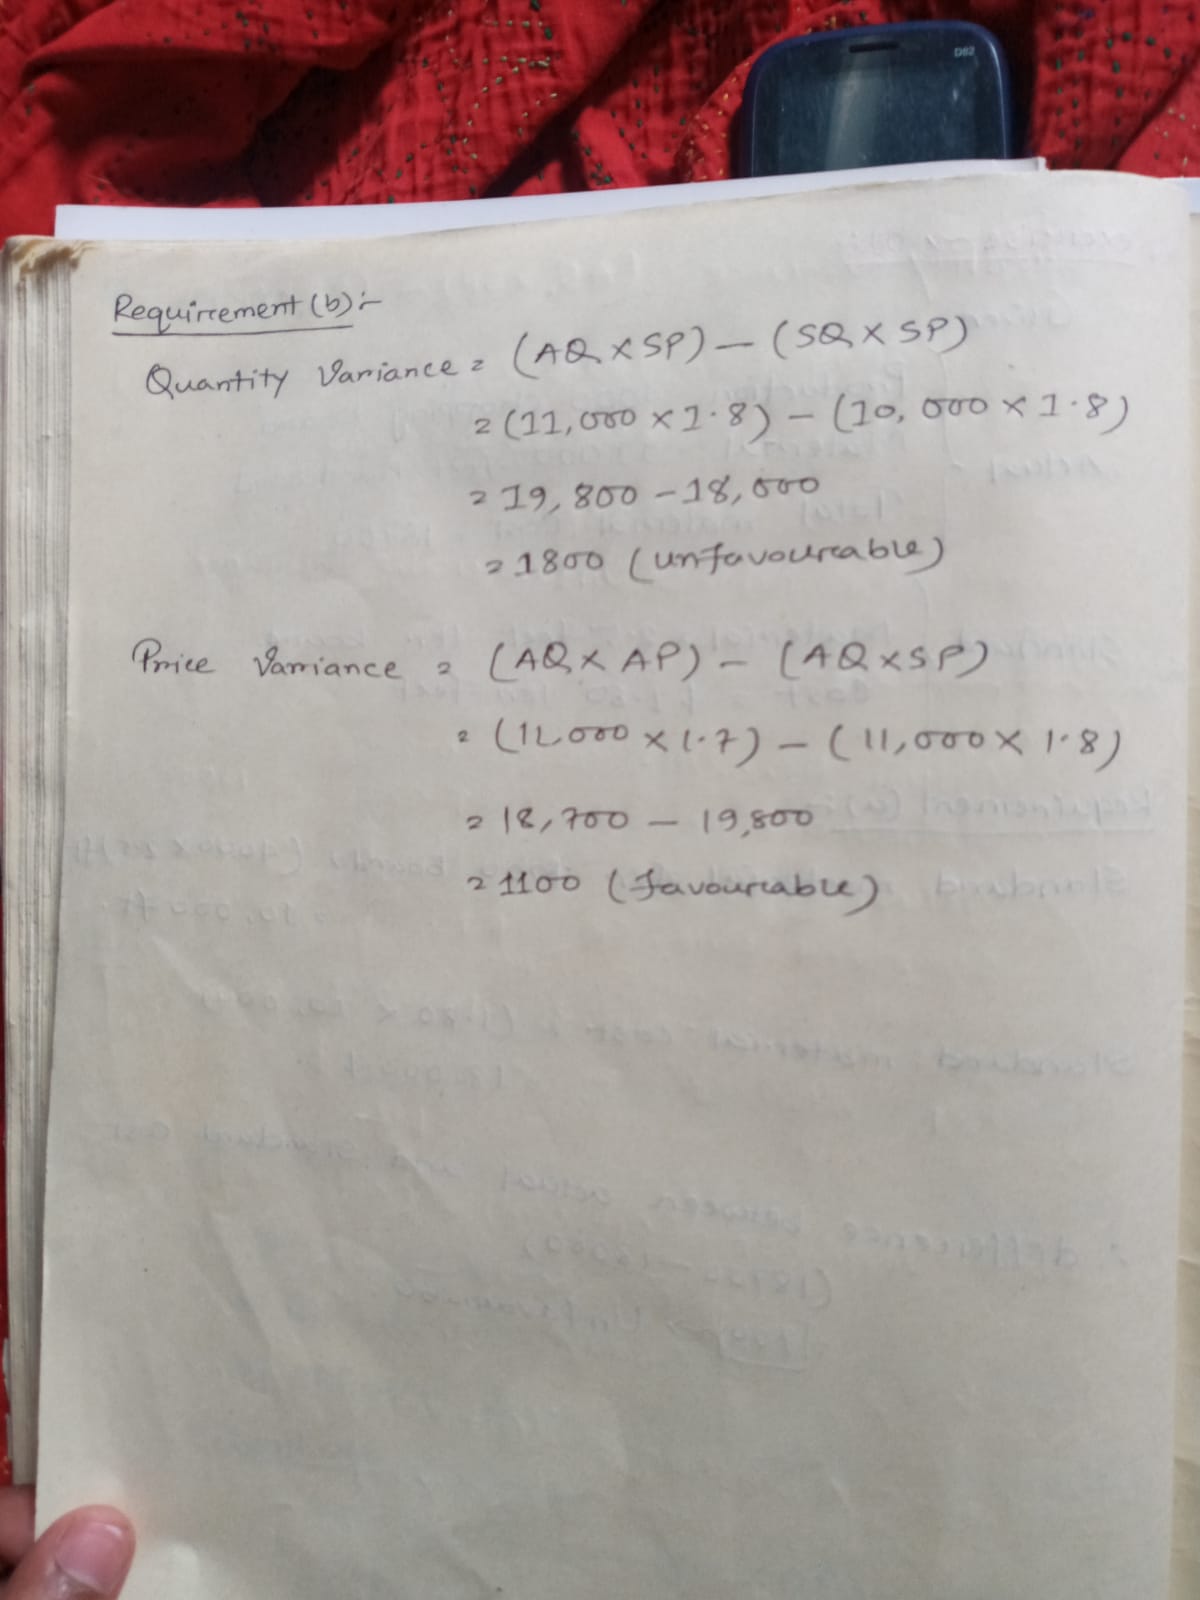 D82
Requirement (b):-
Quantity Variance = (AQ X SP) — (SQ X SP)
= (11,000 X 1.8) — (10,000 X 1.8)
= 19,800 - 18,000
= 1800 (unfavourable)
Price Variance = (AQ X AP) — (AQ X SP)
= (11,000 X 1.7) — (11,000 X 1.8)
= 18,700 — 19,800
= 1100 (favourable)